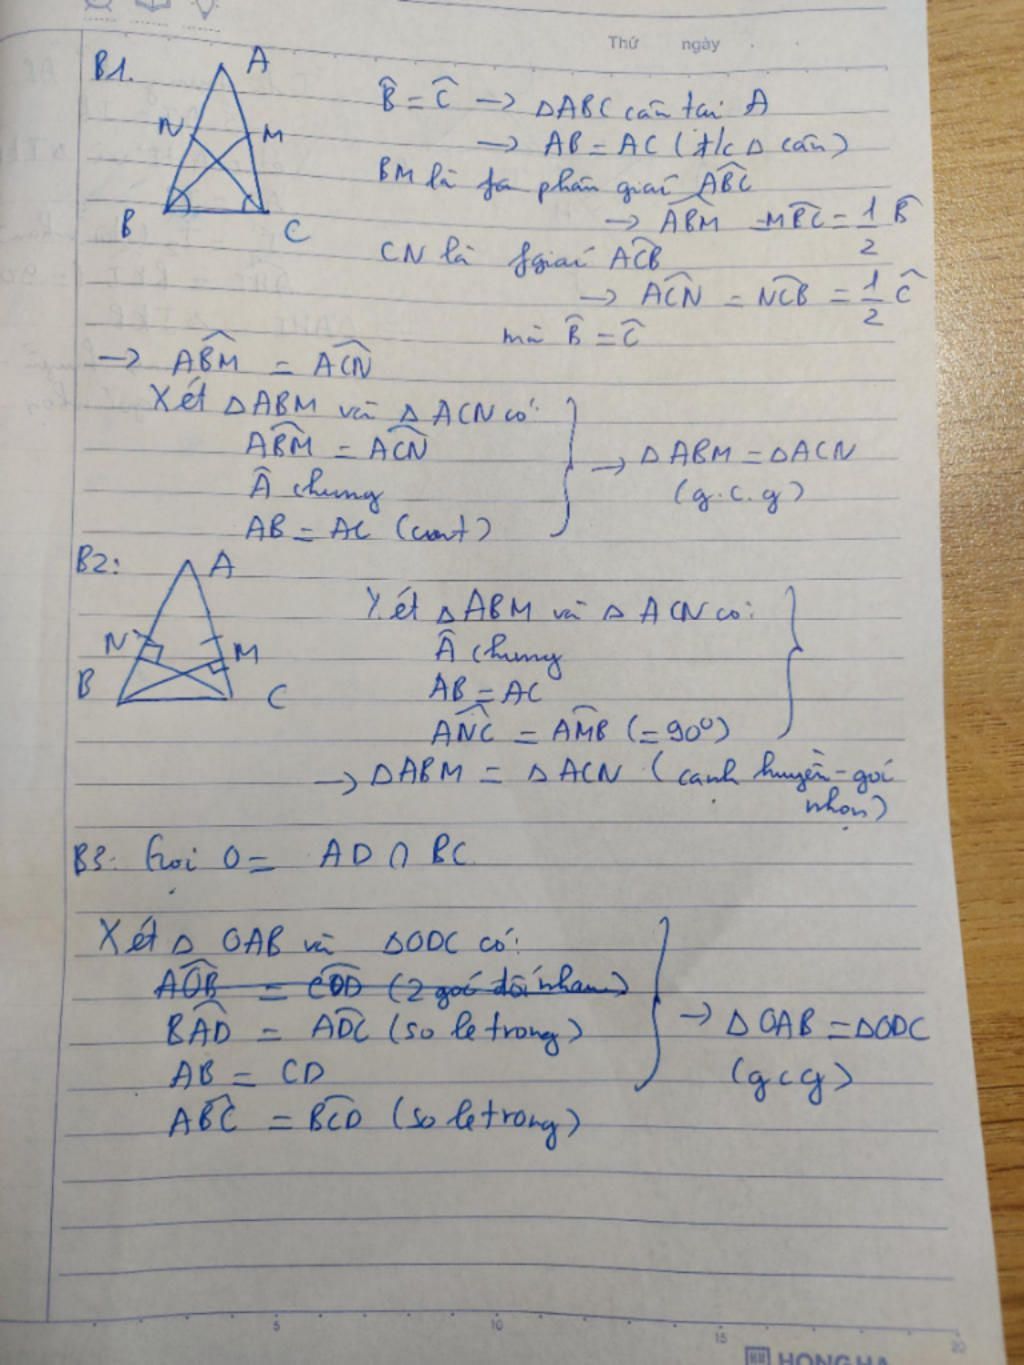 Thứ ngày
B1.
A
N
M
B
C
B̂ = Ĉ → △ABC cân tại A
→ AB = AC (t/c △ cân)
BM là fa phân giác ABC
→ ABM = MBC = 1/2 B̂
CN là fgiác ACB
→ ACN = NCB = 1/2 Ĉ
mà B̂ = Ĉ
→ ABM = ACN
Xét △ABM và △ACN có:
ABM = ACN
Â chung
AB = AC (cmt)
→ △ABM = △ACN
(g.c.g)
B2:
A
N
M
B
C
Xét △ABM và △ACN có:
Â chung
AB = AC
ANC = AMB (=90°)
→ △ABM = △ACN (cạnh huyền - góc
nhọn)
B3. Gọi O = AD ∩ BC
Xét △OAB và △ODC có:
AOB = COD (2 góc đối nhau)
BAD = ADC (so le trong)
AB = CD
ABC = BCD (so le trong)
→ △OAB = △ODC
(gcg)
5 10 15 20
HONG HA